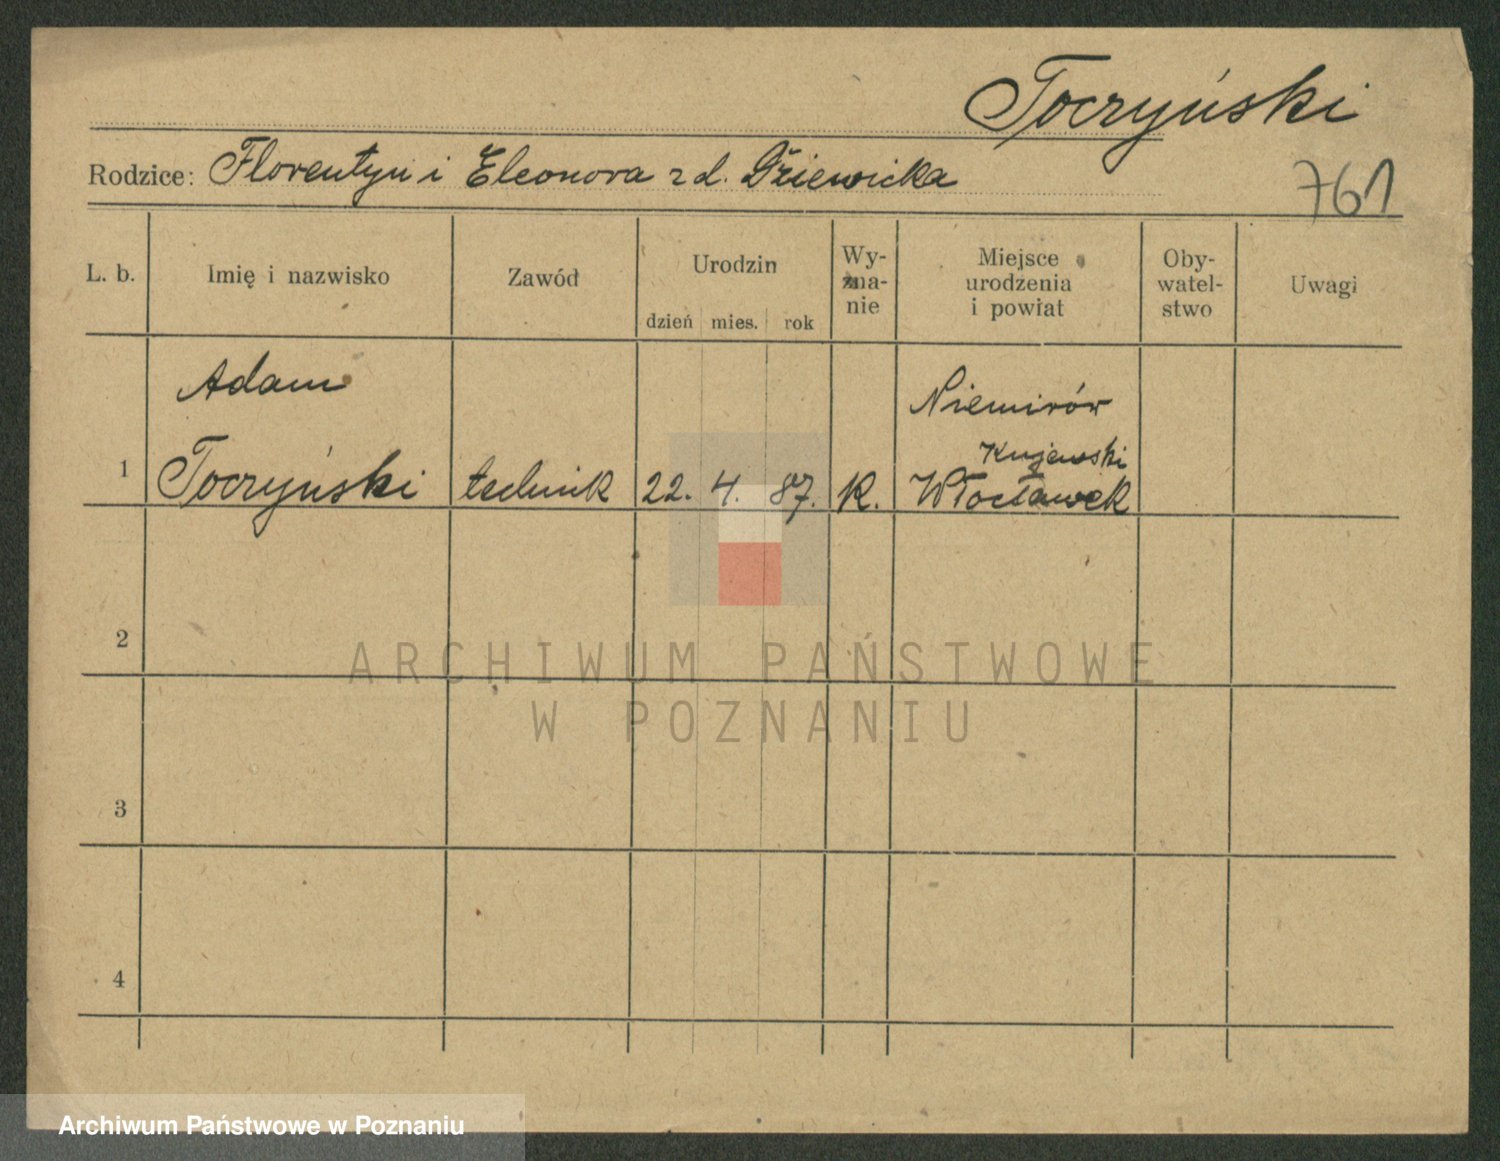 Toczyński
Rodzice: Florentyn i Eleonora z d. Dziewicka
761
L. b. Imię i nazwisko Zawód Urodzin dzień mies. rok Wy-
zna-
nie Miejsce
urodzenia
i powiat Oby-
watel-
stwo Uwagi
Adam
Niemirów
Kujewski
1 Toczyński technik 22. 4. 87. K. Włocławek
2
ARCHIWUM PAŃSTWOWE
W POZNANIU
3
4
Archiwum Państwowe w Poznaniu